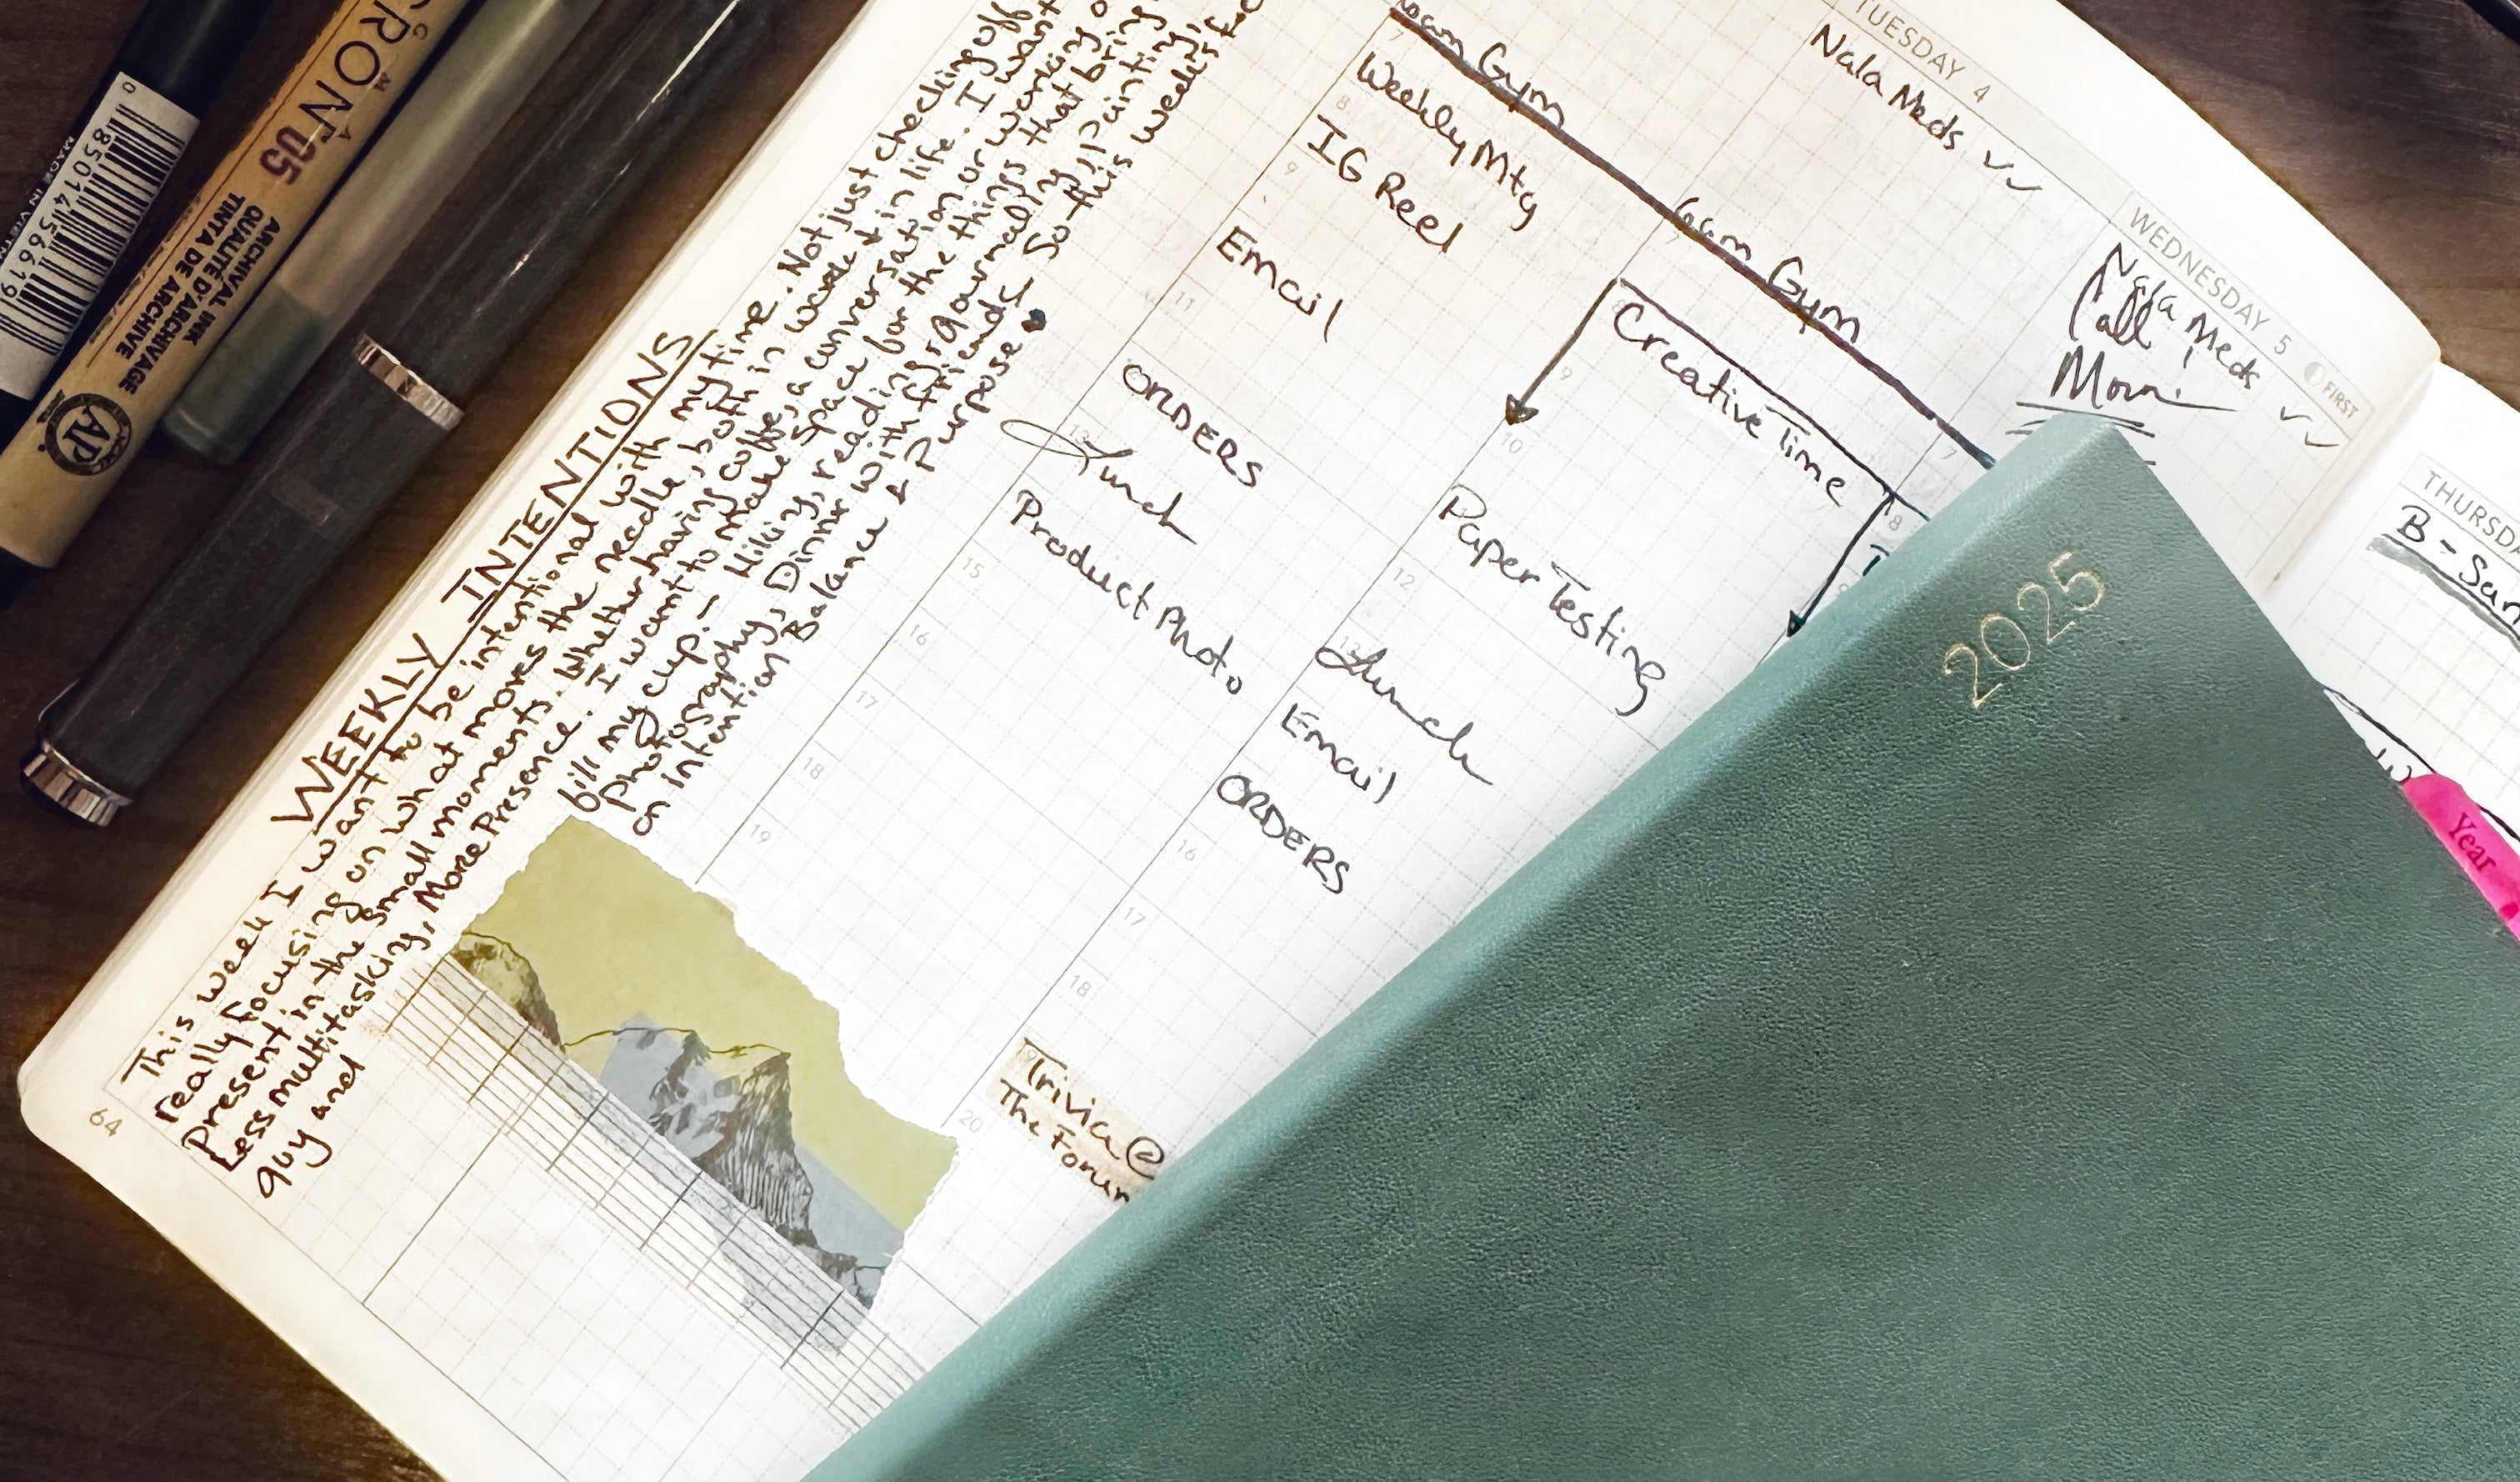 0
850145661 9
MADE IN VIETN
CRON 05
ARCHIVAL INK
QUALITÉ D'ARCHIVAGE
TINTA DE ARCHIVE
AP
WEEKLY INTENTIONS
This week I want to be intentional with my time. Not just checking off
really focusing on what moves the needle, both in work & in life. I want
Present in the small moments. Whether having coffee, a conversation or working
Less multitasking, More Presence. I want to make space for the things that bring
guy and
fill my cup! - Hiking, reading, journaling, painting,
photography, Dinner with friends! So this week's
on intention Balance & Purpose.
64
7
Gym
Weekly Mtg
8
IG Reel
9
Email
11
ORDERS
13
Lunch
Product Photo
15
16
17
18
19
TUESDAY 4
Nala Meds ✓✓
6am Gym
7
8
Creative Time
9
10
Paper Testing
12
13
Lunch
Email
ORDERS
16
17
18
19
Trivia @
The Forum
20
WEDNESDAY 5 FIRST
Nala Meds ✓✓
Call
Mom
7
8
9
THURSDA
B - Sar
W
Year
2025